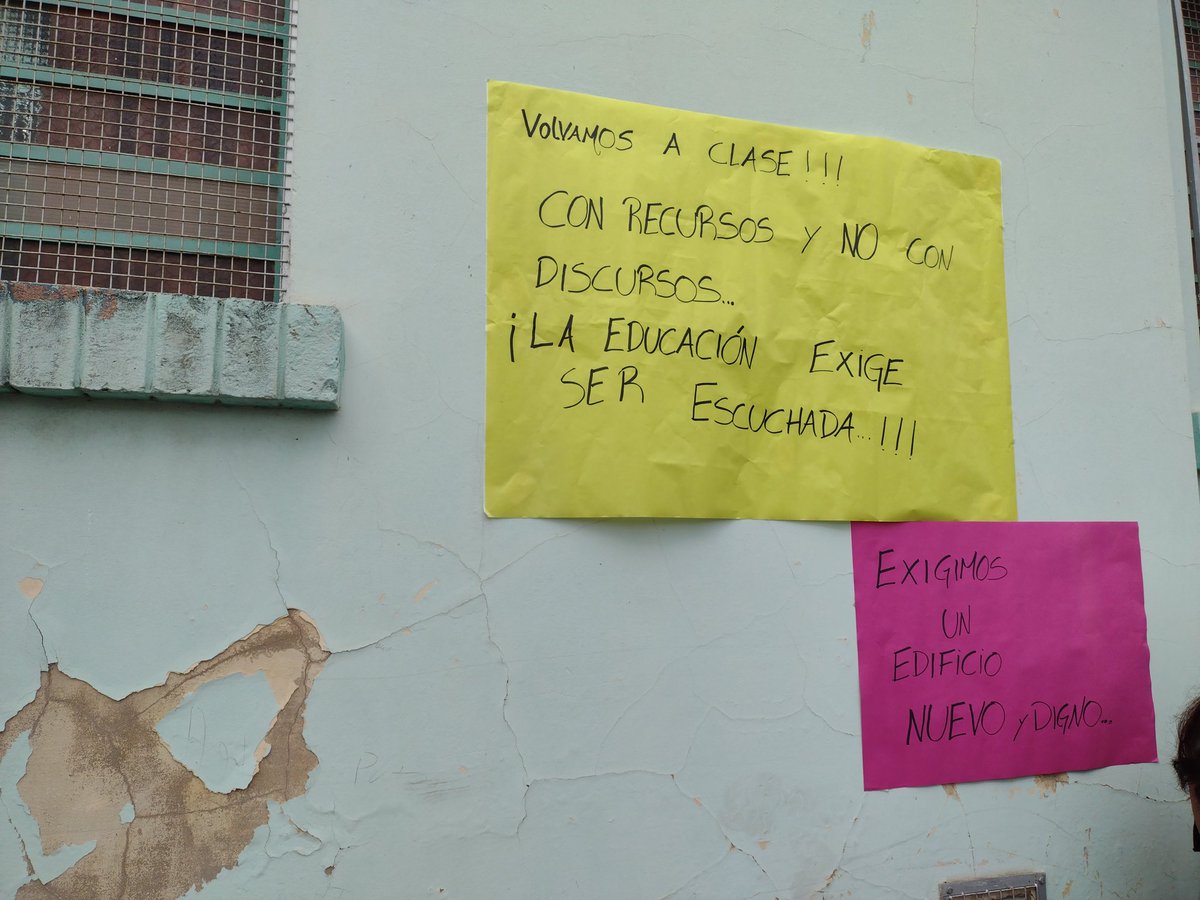 VOLVAMOS A CLASE!!!
CON RECURSOS Y NO CON
DISCURSOS...
¡LA EDUCACIÓN EXIGE
SER ESCUCHADA...!!!
EXIGIMOS
UN
EDIFICIO
NUEVO y DIGNO...